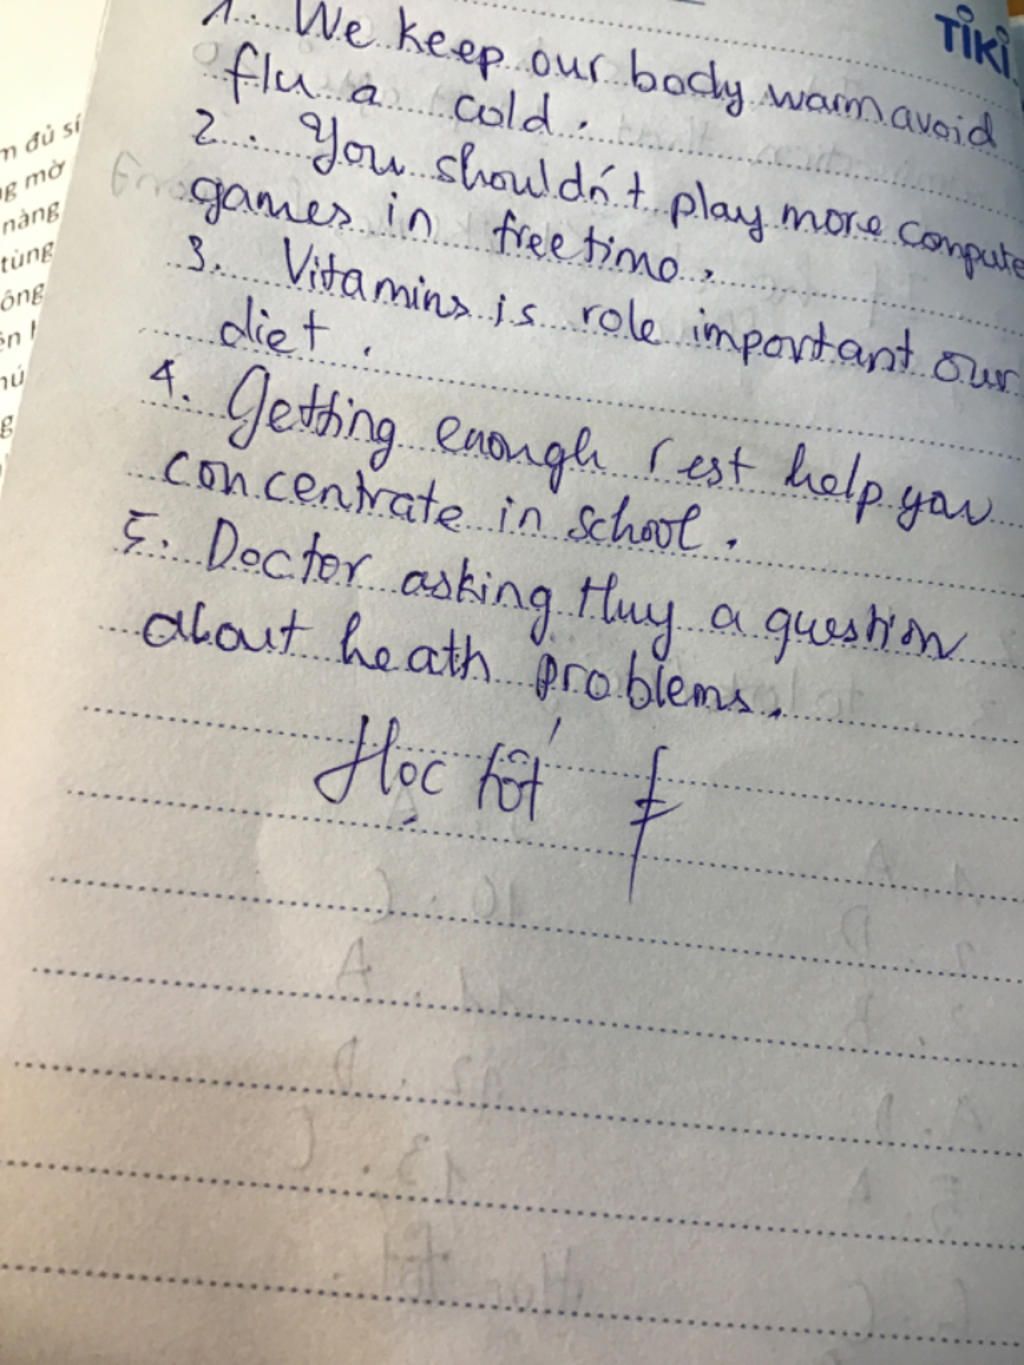 TiKi
1. We keep our body warm avoid
flu a cold.
2. You shouldn't play more compute
games in free time.
3. Vitamins is role important our
diet.
4. Getting enough rest help you
concentrate in school.
5. Doctor asking Huy a question
about heath problems.
Học tốt
m đủ sí
g mờ
nàng
tùng
ông